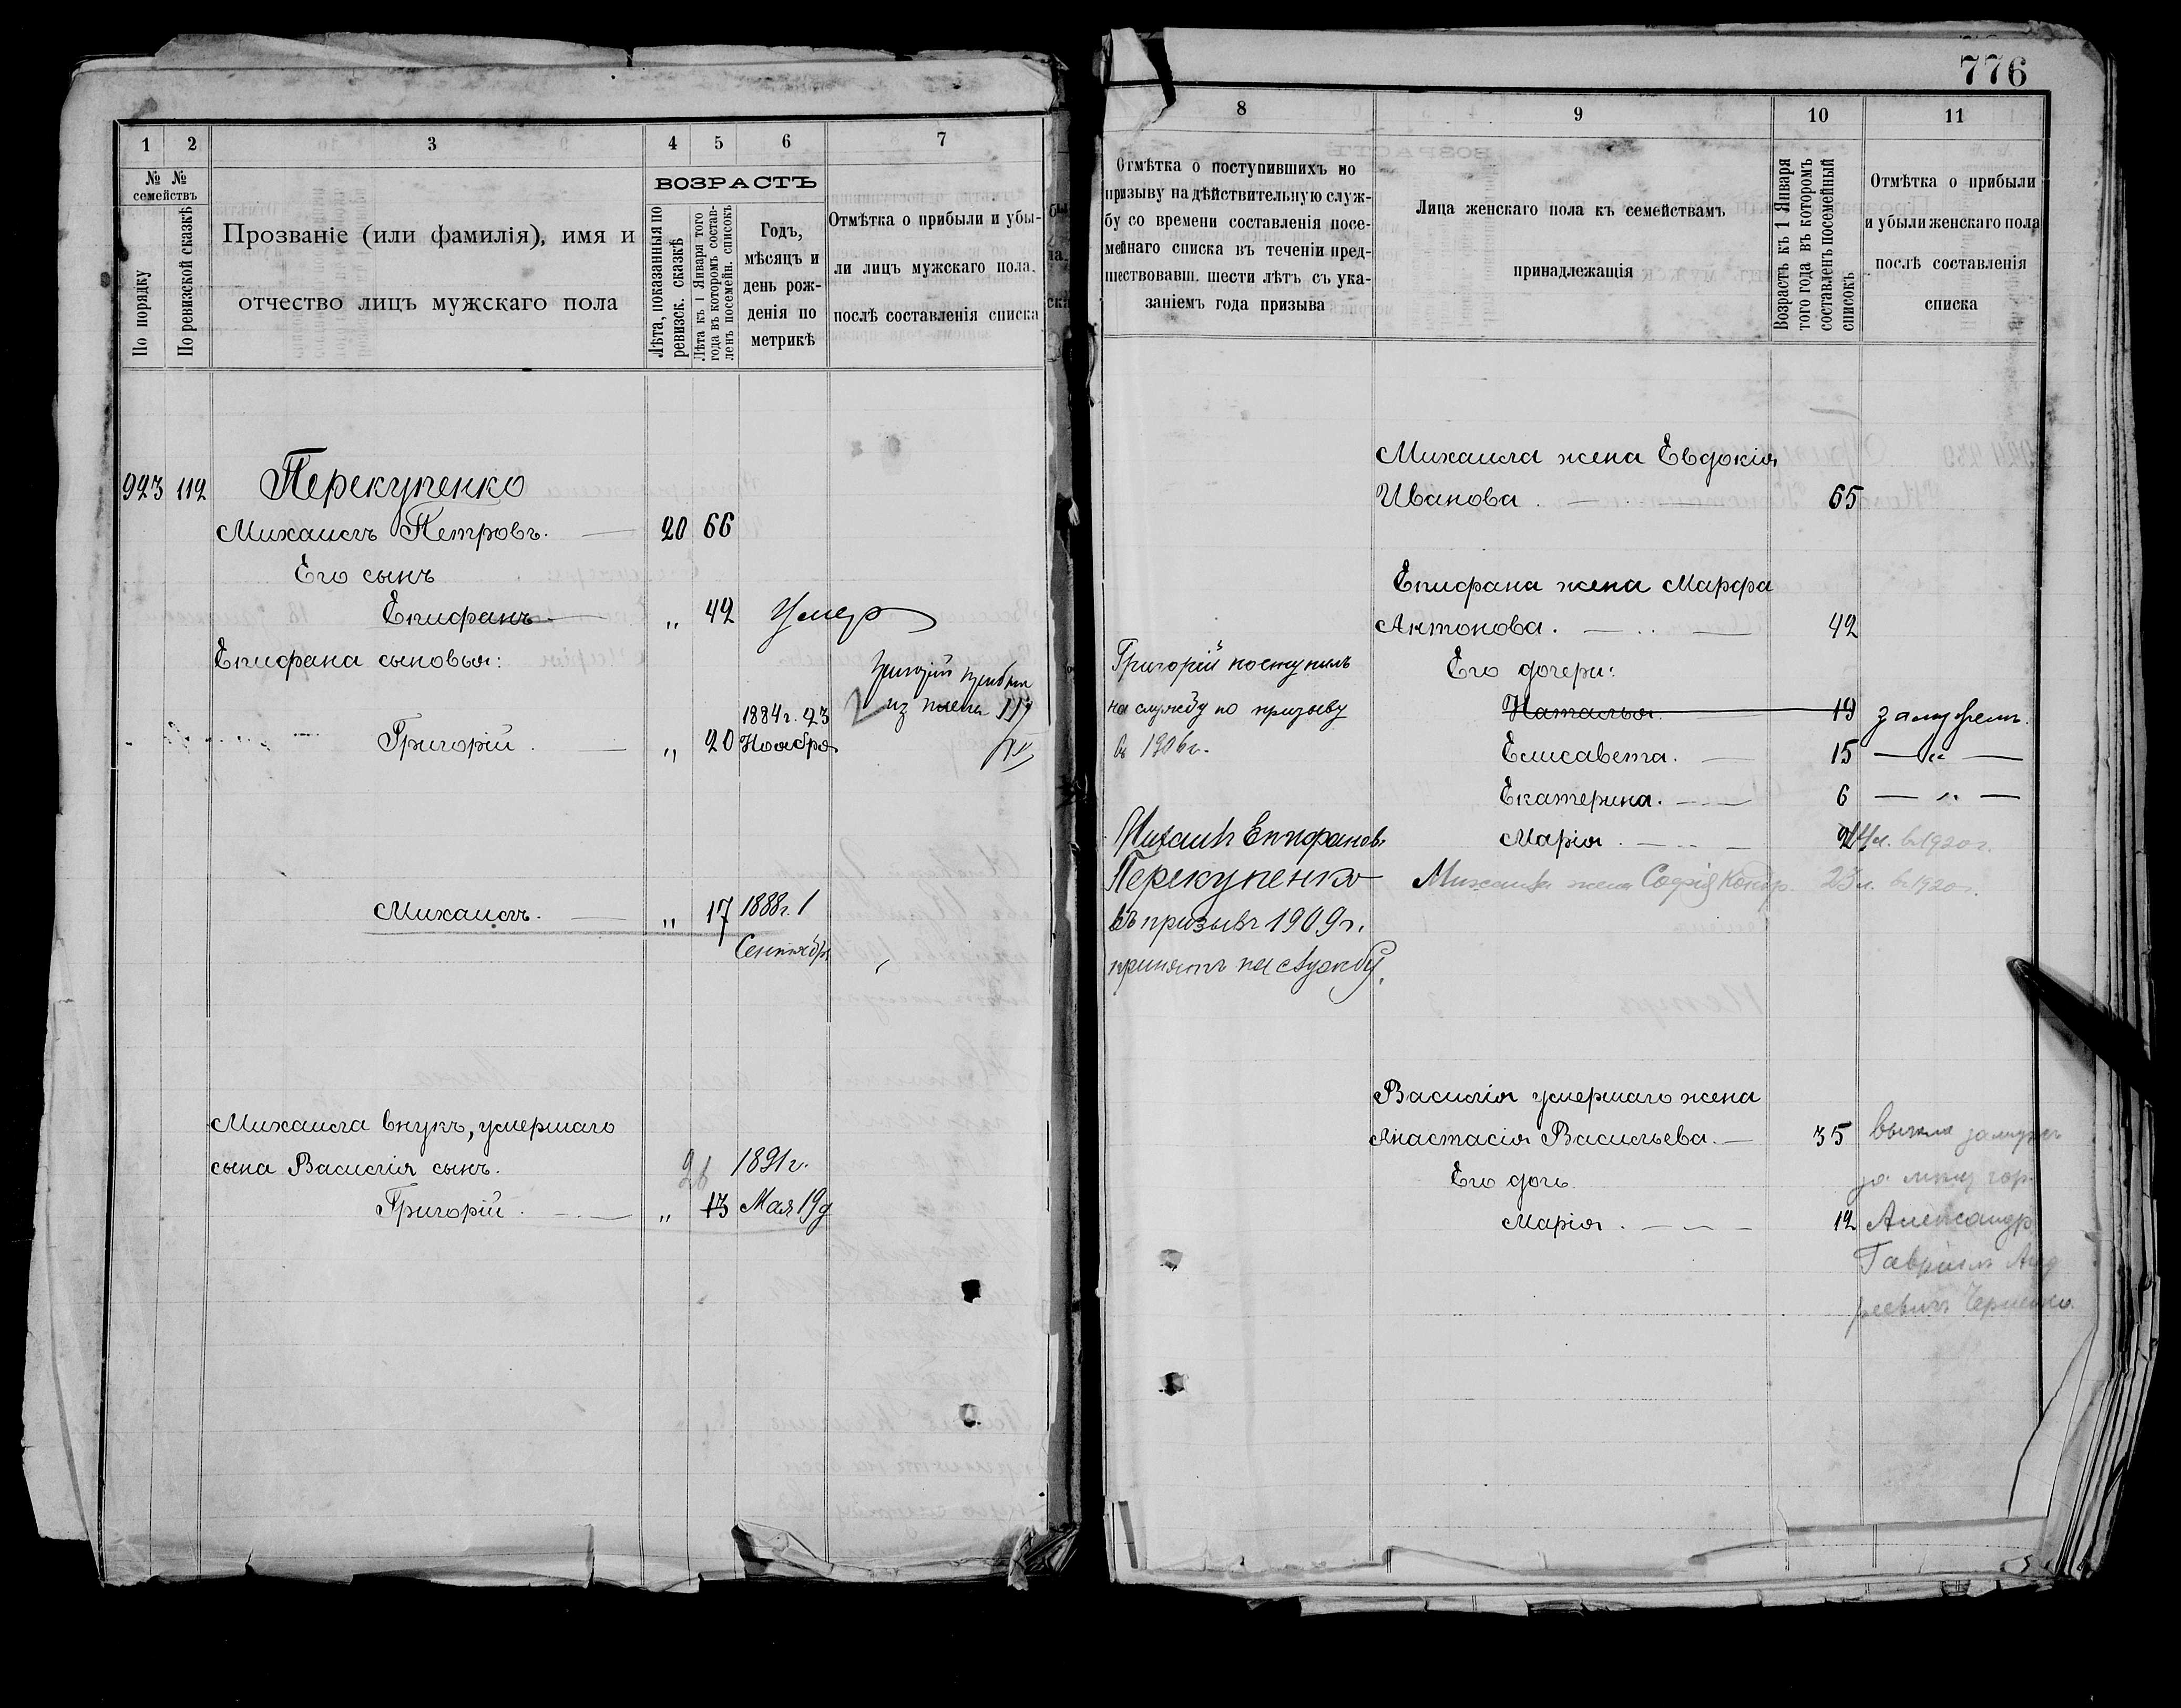 1 2 3 4 5 6 7
№ № семействъ
По порядку
По ревизской сказкѣ
Прозваніе (или фамилія), имя и
отчество лицъ мужскаго пола
ВОЗРАСТЪ
Лѣта, показанныя по
ревизск. сказкѣ
Лѣта къ 1 Января того
года въ которомъ состав-
ленъ посемейн. списокъ
Годъ,
мѣсяцъ и
день рож-
денія по
метрикѣ
Отмѣтка о прибыли и убы-
ли лицъ мужскаго пола
послѣ составленія списка
923 112 Перекупенко
Михаилъ Петровъ. 20 66
Его сынъ
Епифанъ „ 42 умер
Епифана сыновья:
Григорій
из плена
Григорій „ 20 1884г. 23
Ноября
Михаилъ. „ 17 1888г. 1
Сентября
Михаила внукъ, умершаго
сына Василія сынъ.
Григорій „ 13 1891г.
Мая 19д
776
8 9 10 11
Отмѣтка о поступившихъ по
призыву на дѣйствительную служ-
бу со времени составленія посе-
мейнаго списка въ теченіи пред-
шествовавш. шести лѣтъ съ ука-
заніемъ года призыва
Лица женскаго пола къ семействамъ
принадлежащія
Возрастъ къ 1 Января
того года въ которомъ
составленъ посемейный
списокъ
Отмѣтка о прибыли
и убыли женскаго пола
послѣ составленія
списка
Михаила жена Евдокія
Иванова 65
Епифана жена Марфа
Антонова. 42
Григорій поступилъ
на службу по призыву
въ 1906г.
Его дочери:
Наталья. 19 замужем.
Елисавета. 15 — „ —
Екатерина. 6 — „ —
Марія 14л. в 1920г.
Михаила жена Софія 23л. в 1920г.
Михаилъ Епифановъ
Перекупенко
въ призывъ 1909г.
принятъ на службу.
Василія умершаго жена
Анастасія Васильева. 35 вышла замужъ
за
Его дочь
Марія 12 Александр
Гавріилъ Анд
реевичъ